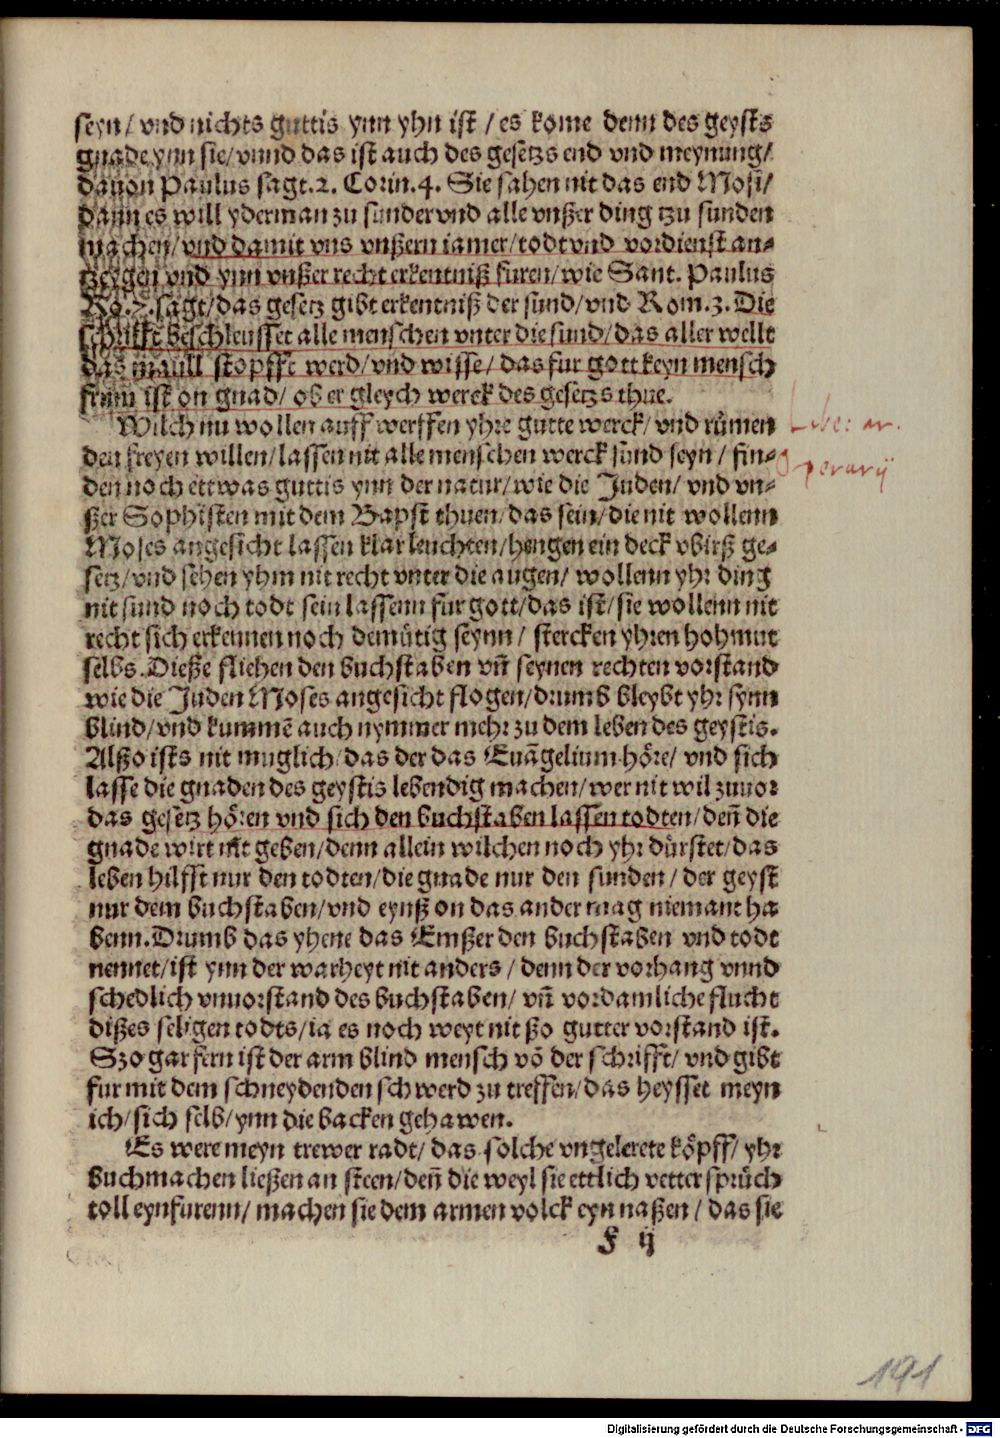 seyn/ vnd nichts guttis ynn yhn ist / es kome denn des geysts
gnade ynn sie/ vnnd das ist auch des gesetzs end vnd meynung/
dauon Paulus sagt. 2. Corin. 4. Sie sahen nit das end Mosi/
dann es will yderman zu sunder vnd alle vnßer ding tzu sunden
machen/ vnd damit vns vnßern iamer/ todt vnd vordienst an-
tzeygen vnd ynn vnßer recht erkentniß furen/ wie Sant. Paulus
Ro. 7. sagt/ das gesetz gibt erkentniß der sund/ vnd Rom. 3. Die
schrifft beschleusset alle menschen vnter die sund/ das aller wellt
das maull stopfft werd/ vnd wisse/ das fur gott keyn mensch
frum ist on gnad/ ob er gleych werck des gesetzs thue.
Wilch nu wollen auff werffen yhre gutte werck/ vnd růmen
den freyen willen/ lassen nit alle menschen werck sund seyn / fin-
den noch ettwas guttis ynn der natur/ wie die Juden/ vnd vn-
ßer Sophisten mit dem Bapst thuen/ das sein/ die nit wollenn
Moses angesicht lassen klar leuchten/ hengen ein deck vbirß ge-
setz/ vnd sehen yhm nit recht vnter die augen/ wollenn yhr ding
nit sund noch todt sein lassenn fur gott/ das ist/ sie wollenn nit
recht sich erkennen noch demůtig seynn / stercken yhren hohmut
selbs. Dieße fliehen den buchstaben vñ seynen rechten vorstand
wie die Juden Moses angesicht flogen/ drumb bleybt yhr synn
blind/ vnd kummē auch nymmer mehr zu dem leben des geystis.
Alßo ists nit muglich/ das der das Euāgelium höre/ vnd sich
lasse die gnaden des geystis lebendig machen/ wer nit wil zuuor
das gesetz hören vnd sich den buchstaben lassen todten/ deñ die
gnade wirt nit geben/ denn allein wilchen noch yhr důrstet/ das
leben hilfft nur den todten/ die gnade nur den sunden / der geyst
nur dem buchstaben/ vnd eynß on das ander mag niemant ha
benn. Drumb das yhene das Emßer den buchstaben vnd todt
nennet/ ist ynn der warheyt nit anders / denn der vorhang vnnd
schedlich vnuorstand des buchstaben/ vñ vordamliche flucht
dißes seligen todts/ ia es noch weyt nit ßo gutter vorstand ist.
Szo gar fern ist der arm blind mensch vō der schrifft/ vnd gibt
fur mit dem schneydenden schwerd zu treffen/ das heysset meyn
ich/ sich selb/ ynn die backen gehawen.
Es were meyn trewer radt/ das solche vngelerete köpff/ yhr
buchmachen ließen an steen/ deñ die weyl sie ettlich vetter sprůch
toll eynfurenn/ machen sie dem armen volck eyn naßen / das sie
F ij
191
Digitalisierung gefördert durch die Deutsche Forschungsgemeinschaft - DFG